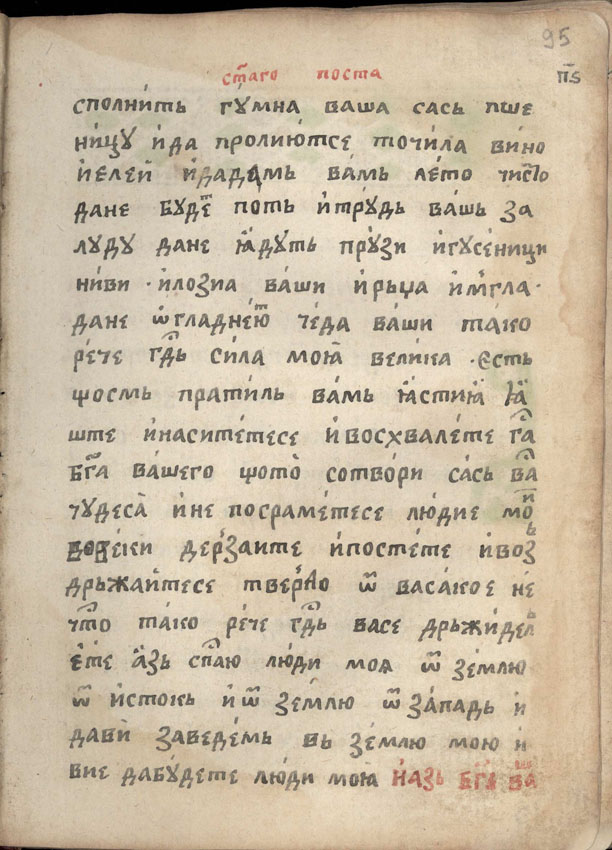 95
ст҃аго поста
п҃ѕ
сполни́ть гꙋ́мна ваша сась пше
ни́цꙋ и҆да пролиютсе точи́ла ви́но
и҆елей и҆дада́мь ва́мь ле́то чисто
дане бꙋ́дет поть и҆трꙋ́дь ва́шь за
лꙋдꙋ дане ꙗ҆дꙋть прꙋ́зи и҆гꙋсе́ници
ни́ви · и҆лозиа ва́ши и҆рьџа и҆мѓла ·
дане ѡ҆гладнею́т че́да ва́ши тако
ре́че гд҇ь си́ла моꙗ̀ велика · є҆сть
ѱосмь пратиль вамь ꙗ҆стиꙗ̀ ꙗ҆
ште и҆наси́тетесе и҆восхвале́те га҇
бг҃а ва́шего ѱото̀ сотво́ри сась ва҇
чꙋдеса̀ и҆не посраме́тесе лю́дие мо́и
вове́ки дерза́ите и҆посте́те и҆воз
дрьжа́йтесе тве́рдо ѿ васа́кое не́
что҇ та́ко ре́че гд҇ь васе дрьжи́дель
е́те а҆́зь спа҇ю лю́ди моя ѿ зе́млю
ѿ и҆стокь и҆ѿ зе́млю ѿ за́падь и҆
дави̇̀ заведе́мь вь зе́млю мою и҆
вие дабꙋ́дете лю́ди моꙗ и҆азь бг҃а ва